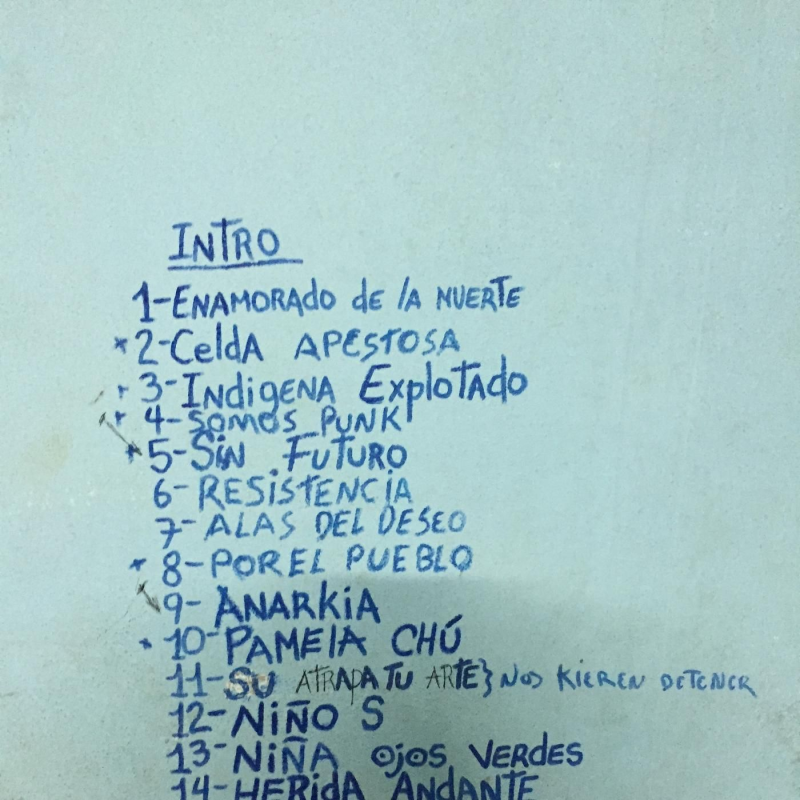 INTRO
1-ENAMORADO de lA MUERTE
* 2-CeldA APESTOSA
3-IndigENA ExplotADo
4-SomoS PUNK
5-SiN FUTURO
6-RESiSTENCiA
7-ALAS DEL DESEO
8-POR EL PUEBLO
9-ANARKiA
10-PAMElA CHÚ
11-SU ATRAPA TU ARTE} NOS KIEREN DETENER
12-NiÑO S
13-NiÑA ojoS VERDES
14-HERidA ANDANTE